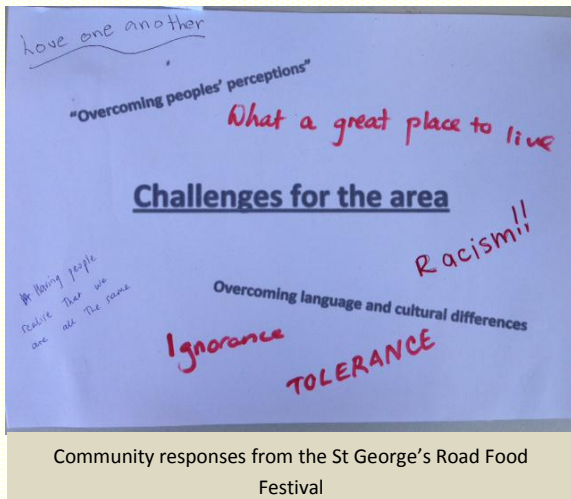 Love one another
"Overcoming peoples' perceptions"
What a great place to live
Challenges for the area
Racism!!
Having people
realise that we
are all the same
Overcoming language and cultural differences
Ignorance
TOLERANCE
Community responses from the St George's Road Food
Festival